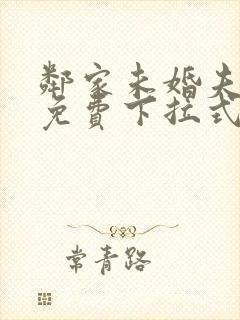 鄰家未婚夫
免費下拉式
常青路